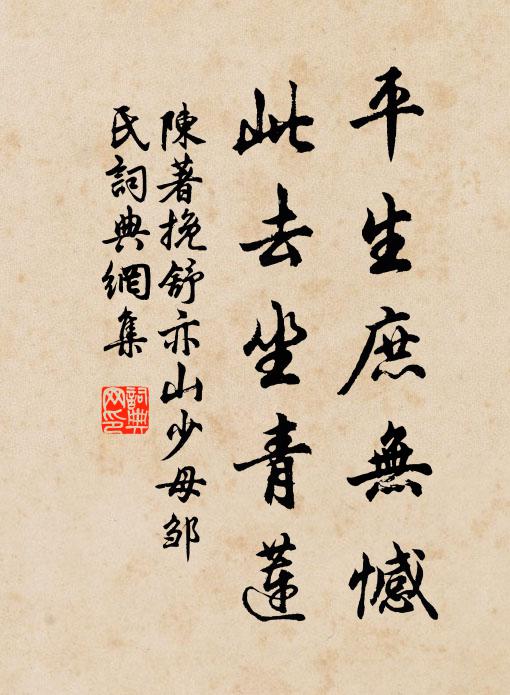 平生庶無憾
此去坐青蓮
陳著挽舒亦山少母邹
氏詞典網集
詞典网印